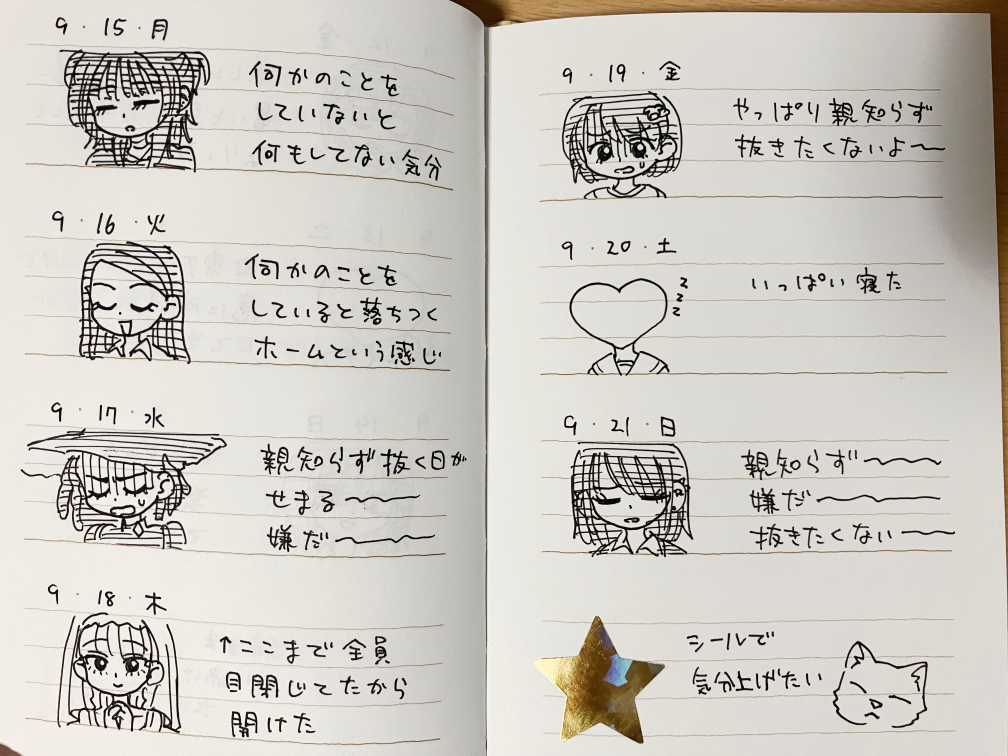 9・15・月
何かのことを
していないと
何もしてない気分
9・16・火
何かのことを
していると落ちつく
ホームという感じ
9・17・水
親知らず抜く日が
せまる〜
嫌だ〜
9・18・木
↑ここまで全員
目閉じてたから
開けた
9・19・金
やっぱり親知らず
抜きたくないよ〜
9・20・土
zzz
いっぱい寝た
9・21・日
親知らず〜
嫌だ〜
抜きたくない〜
シールで
気分上げたい